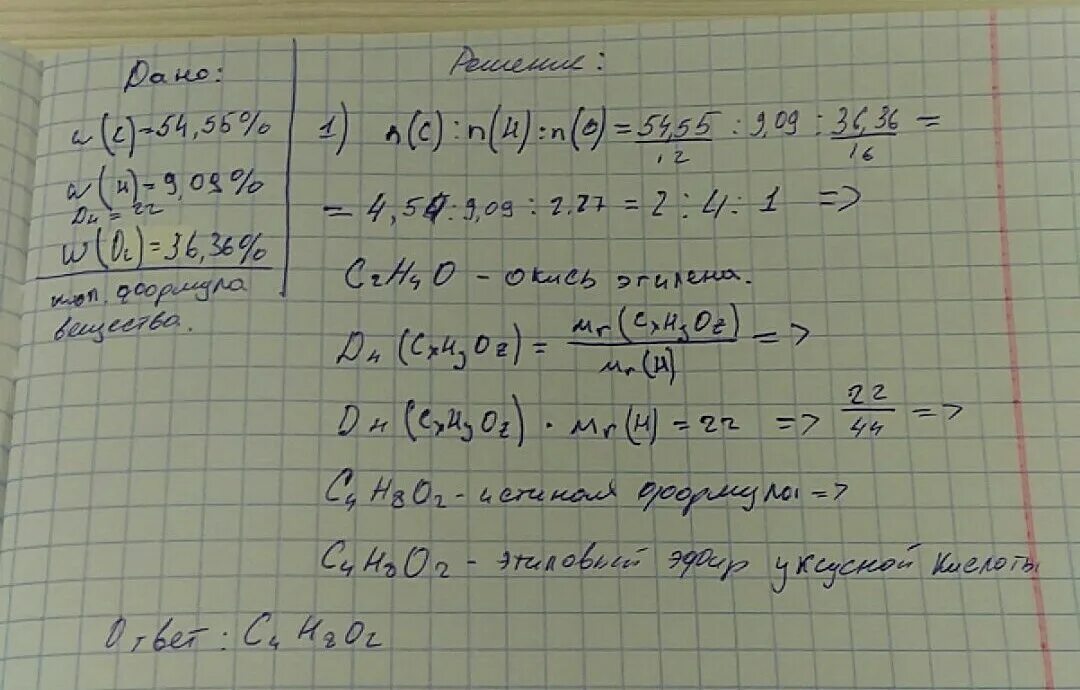 Дано:
w(C)=54,55%
w(H)=9,09%
Dн = 22
w(O₂)=36,36%
формула
вещества.
Решение:
1) n(C):n(H):n(O)=54,55/12 : 9,09 : 36,36/16 =
= 4,54:9,09:2.27 = 2:4:1 =>
C₂H₄O - окись этилена.
Dн (CxHyOz) = Mr(CxHyOz)/Mr(H) =>
Dн (CxHyOz) · Mr(H) = 22 => 22/44 =>
C₄H₈O₂ - истиная формула =>
C₄H₈O₂ - этиловый эфир уксусной кислоты
Ответ: C₄H₈O₂